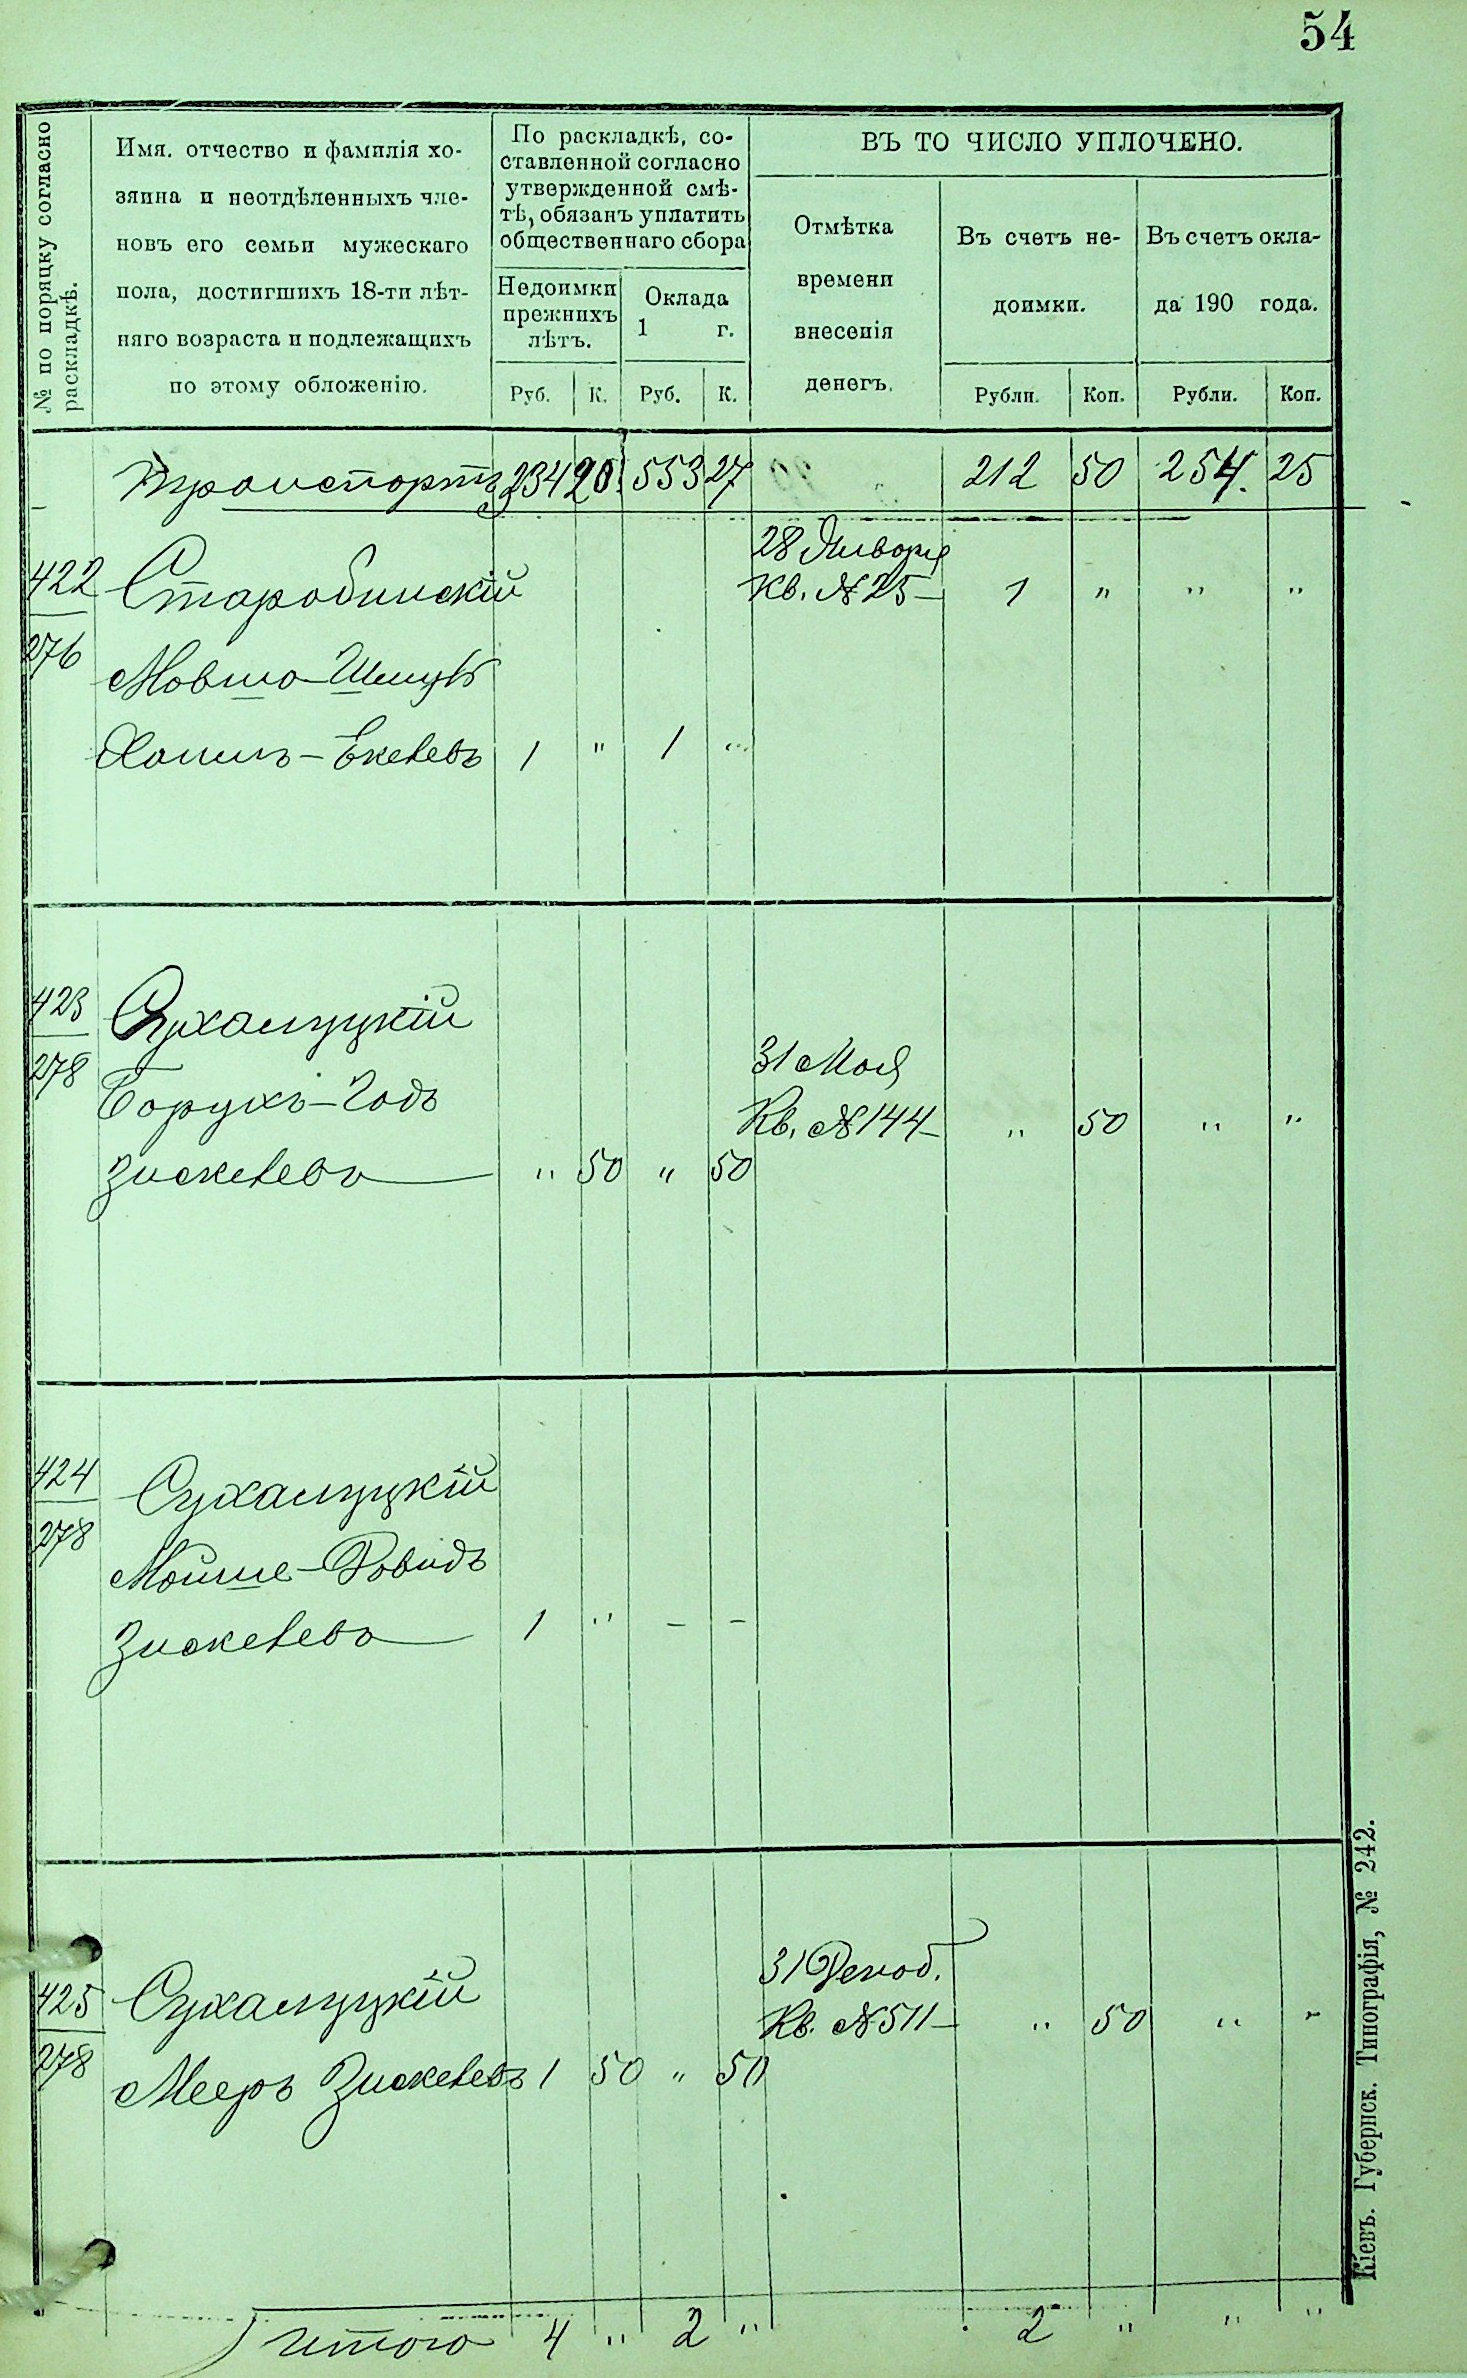 54
№ по порядку согласно раскладкѣ.
Имя, отчество и фамилія хо-
зяина и неотдѣленныхъ чле-
новъ его семьи мужескаго
пола, достигшихъ 18-ти лѣт-
няго возраста и подлежащихъ
по этому обложенію.
По раскладкѣ, со-
ставленной согласно
утвержденной смѣ-
тѣ, обязанъ уплатить
общественнаго сбора
Недоимки
прежнихъ
лѣтъ.
Оклада
1 г.
Руб. К. Руб. К.
ВЪ ТО ЧИСЛО УПЛОЧЕНО.
Отмѣтка
времени
внесенія
денегъ.
Въ счетъ не-
доимки.
Въ счетъ окла-
да 190 года.
Рубли. Коп. Рубли. Коп.
Транспортъ 234 20 553 27 212 50 254 25
28 Января
422 Старобинскій Кв. №25 1 " " "
276
Мовша-Шмуль
Хаимъ-Екелевъ 1 " 1 "
423 Сухалуцкій
278
Борухъ-Годъ
31 Мая
Кв. №144 " 50 " "
Зискелевъ " 50 " 50
424 Сухалуцкій
278
Мойше-Довидъ
Зискелевъ 1 " - -
31 Декаб.
425 Сухалуцкій Кв. №511 " 50 " "
278
Мееръ Зискелевъ 1 50 " 50
Итого 4 " 2 " 2 " " "
Кіевъ. Губернск. Типографія, № 242.